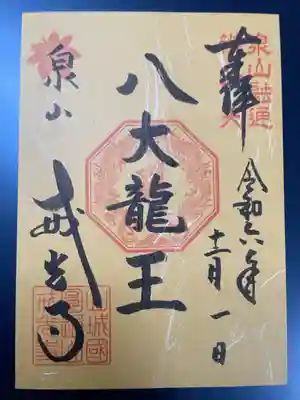 奉拝
令和六年
十二月一日
八大龍王
泉山
戒光寺
泉山融通
山城國